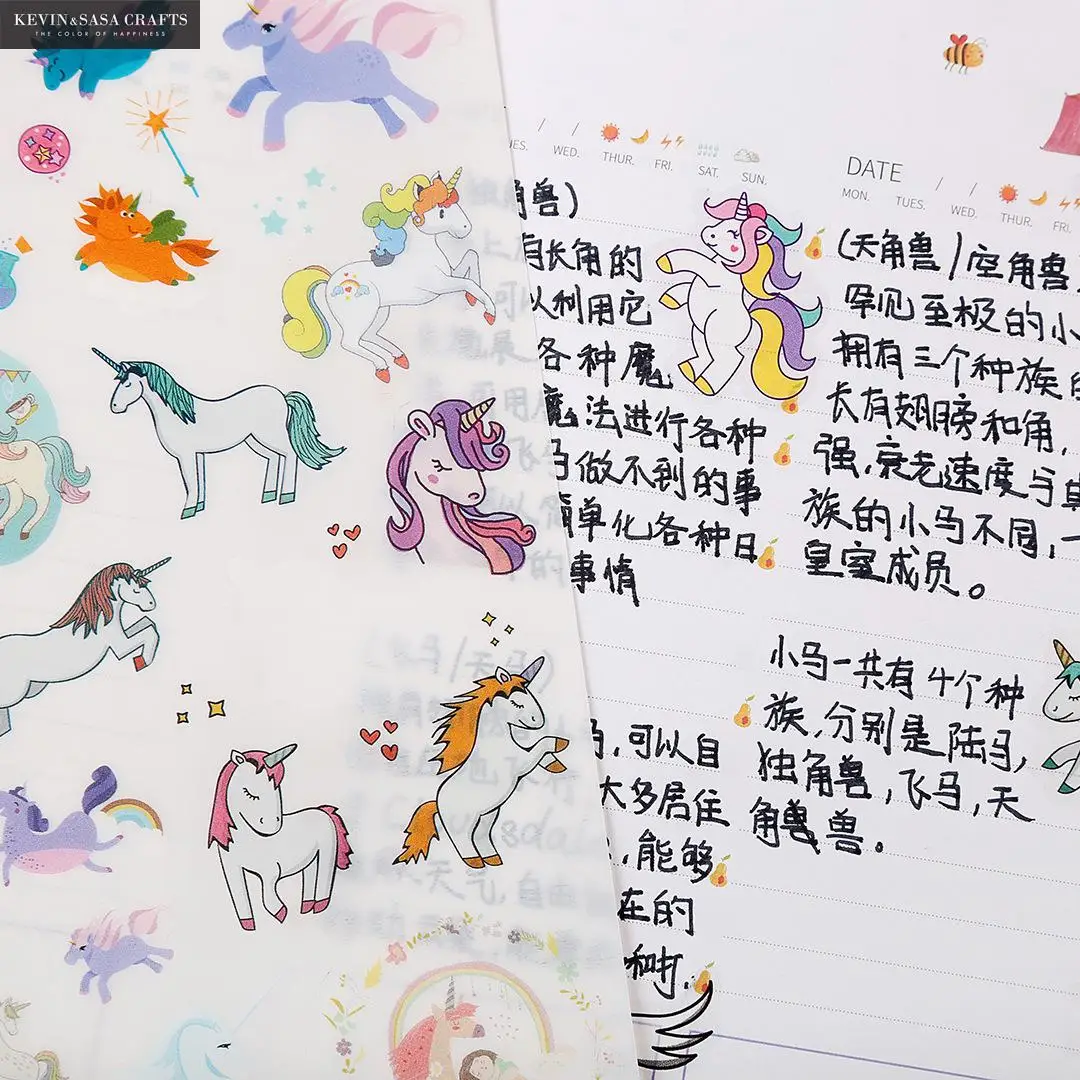 KEVIN&SASA CRAFTS
THE COLOR OF HAPPINESS
WED. THUR. FRI. SAT. SUN.
角兽)
有长角的
以利用它
各种魔
魔法进行各种
马做不到的事
简单化各种日
事情
马,可以自
大多居住
,能够
在的
DATE / /
MON. TUES. WED. THUR. FRI.
(天角兽/空角兽
罕见至极的小
拥有三个种族
长有翅膀和角,
强,衰老速度与
族的小马不同,一
皇室成员。
小马一共有4个种
族,分别是陆马,
独角兽,飞马,天
角兽。